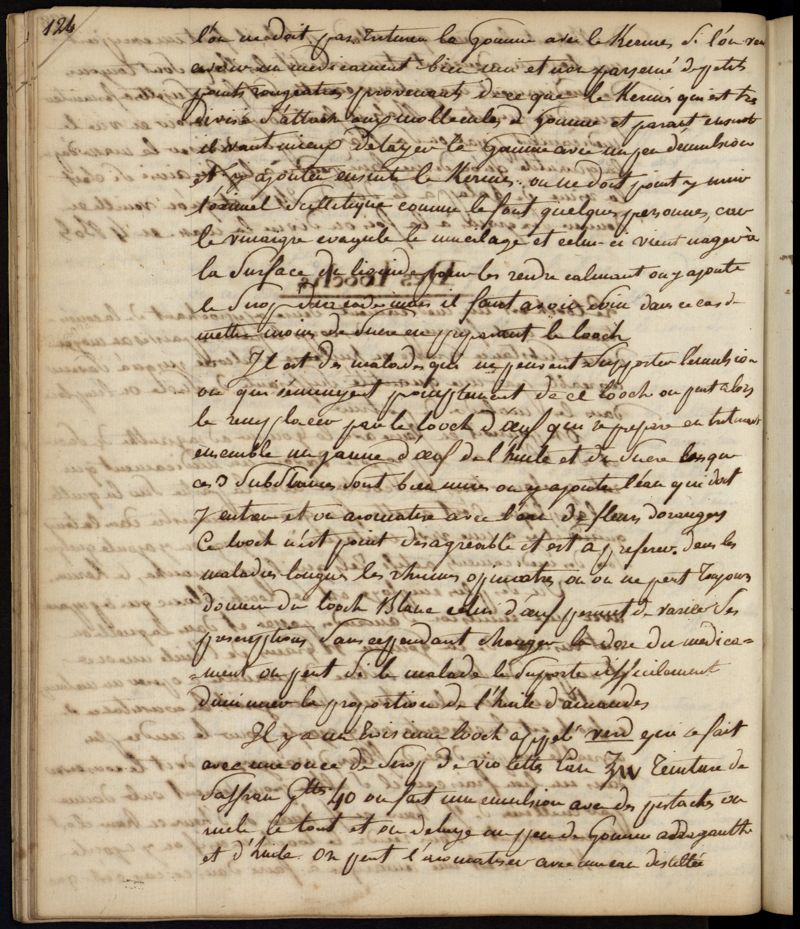 126
l'on ne doit pas triturer la Gomme avec le Kermes Si l'on veu
avoir un medicament bien uni et non parsemé de petits
points rougeatres provenants de ce que le Kermes qui est tres
divisé S'attache aux mollecules de Gomme et parait ensuite
il vaut mieux Delayer la Gomme avec un peu demulsion
et y ajouter ensuite le Kermes. on ne doit point y unir
l'oximel Scillitique comme le font quelques personnes, car
le vinaigre coagule le mucilage et celui ci vient nager à
la Surface du liquide pour les rendre calmant on y ajoute
le Sirop diacode mais il faut avoir soin dans ce cas de
mettre moins de Sucre en preparant le looch
Il est des malades qui ne peuvent Supporter l'emulsion
ou qui s'ennuyent promptement de ce looch on peut alors
le remplacer par le looch d'œuf qui se prepare en triturant
ensemble un jaune d'œuf de l'huile et du Sucre lorsque
ces 3 Substances Sont bien unies on y ajoute l'eau qui doit
y entrer et on aromatise avec l'eau de fleurs doranges
Ce looch n'est point desagreable et est a preferer dans les
maladies longues les rhumes opiniatres ou on ne peut toujours
donner du looch Blanc celui d'œuf permet de varier Ses
prescriptions Sans cependant changer la dose du medica=
=ment on peut Si le malade le Supporte difficilement
diminuer la proportion de l'huile d'amandes
Il y a un troisieme looch appelé verd qui se fait
avec une once de Sirop de violettes Eau ℥iv Teinture de
Saffran Gttes 40 on fait une emulsion avec des pistaches on
mele le tout et on delaye un peu de Gomme adraganthe
et d'huile. On peut l'aromatiser avec une eau distillée